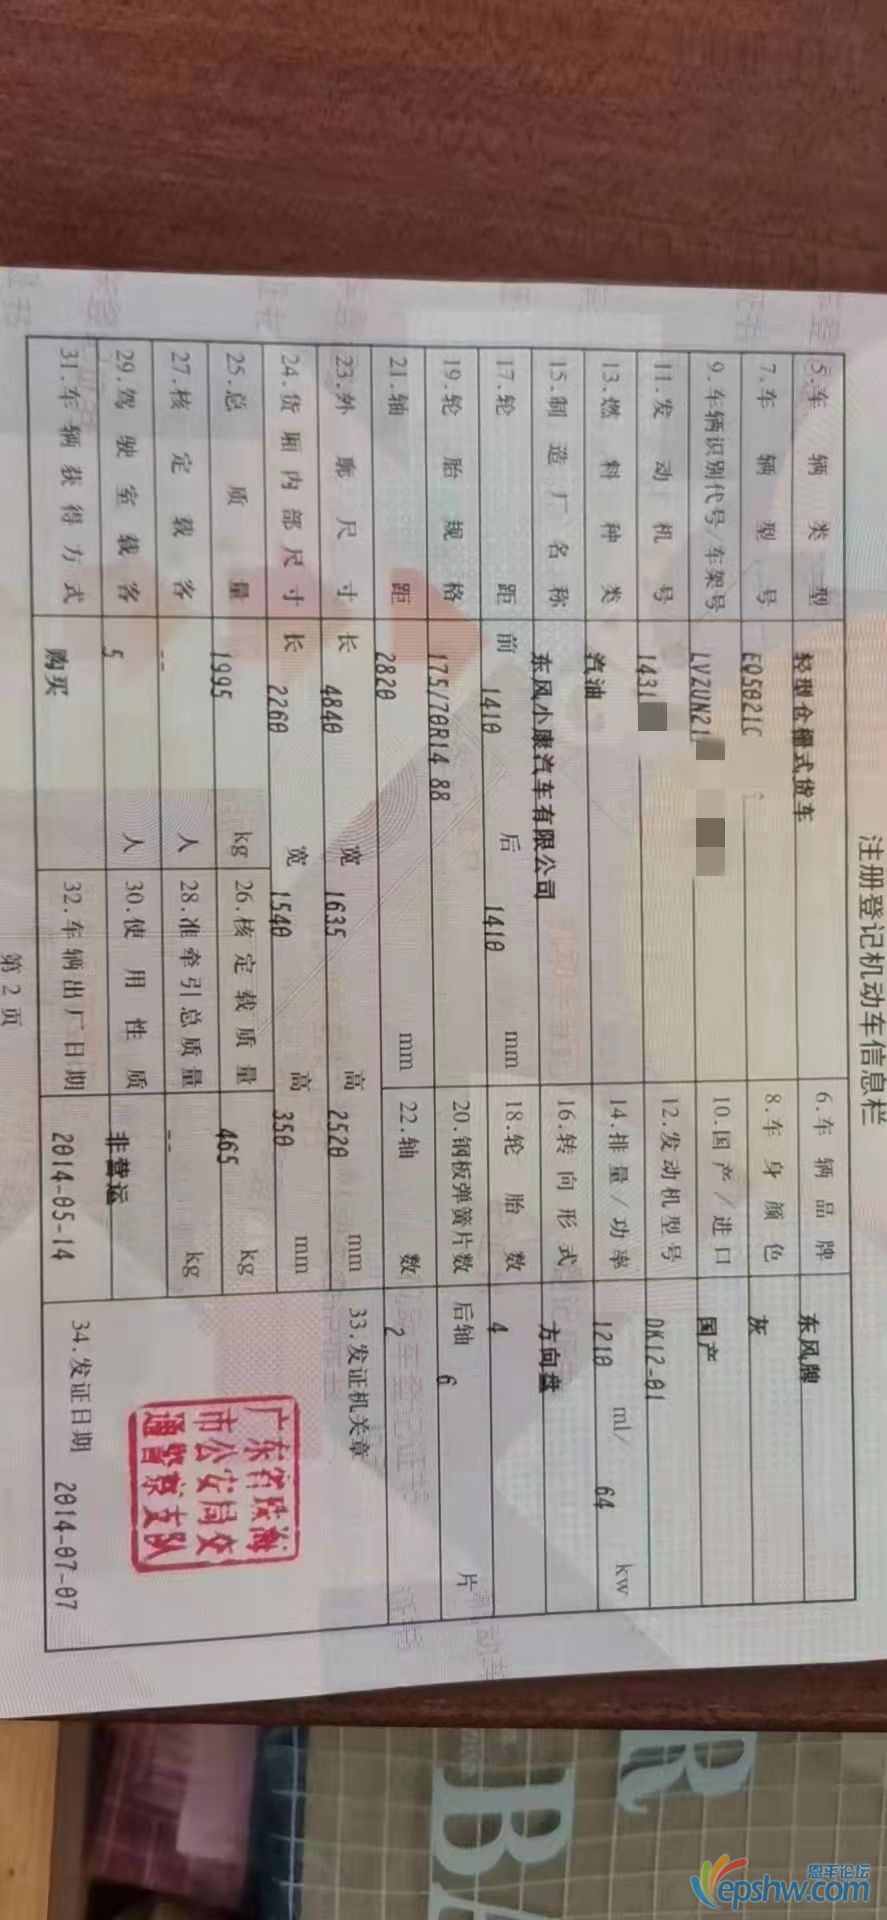 注册登记机动车信息栏
5.车辆类型 轻型仓栅式货车 6.车辆品牌 东风牌
7.车辆型号 EQ5021C 8.车身颜色 灰
9.车辆识别代号/车架号 LVZUN21 10.国产/进口 国产
11.发动机号 1431 12.发动机型号 DK12-01
13.燃料种类 汽油 14.排量/功率 1210 ml/ 64 kw
15.制造厂名称 东风小康汽车有限公司 16.转向形式 方向盘
17.轮距 前 1410 后 1410 mm 18.轮胎数 4
19.轮胎规格 175/70R14 88 20.钢板弹簧片数 后轴 6 片
21.轴距 2820 mm 22.轴数 2
23.外廓尺寸 长 4840 宽 1635 高 2520 mm 33.发证机关章
24.货厢内部尺寸 长 2260 宽 1540 高 350 mm
25.总质量 1995 kg 26.核定载质量 465 kg
27.核定载客 -- 人 28.准牵引总质量 -- kg
29.驾驶室载客 5 人 30.使用性质 非营运
31.车辆获得方式 购买 32.车辆出厂日期 2014-05-14 34.发证日期 2014-07-07
广东省珠海
市公安局交
通警察支队
第2页
R
BA
恩平论坛
epshw.com